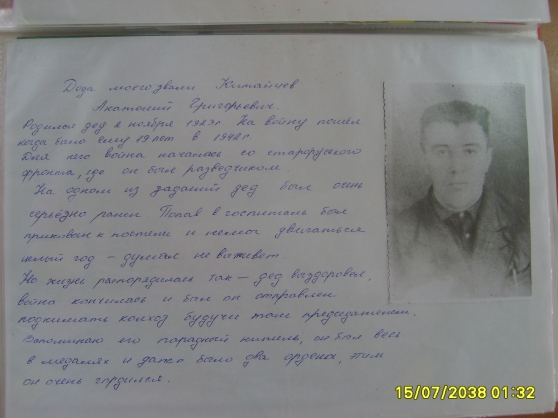 Деда моего звали Китайцев
Анатолий Григорьевич.
Родился дед 2 ноября 1923г. На войну пошёл
когда было ему 19 лет в 1942г
Для него война началась со старорусского
фронта, где он был разведчиком.
На одном из заданий дед был очень
серьёзно ранен. Попав в госпиталь был
прикован к постели и не мог двигаться
целый год – думали не выживет.
Но жизнь распорядилась так – дед выздоровел,
война кончилась и был он отправлен
поднимать колхоз будучи там председателем.
Вспоминаю его парадный китель, он был весь
в медалях и даже было два ордена, этим
он очень гордился.
15/07/2038 01:32